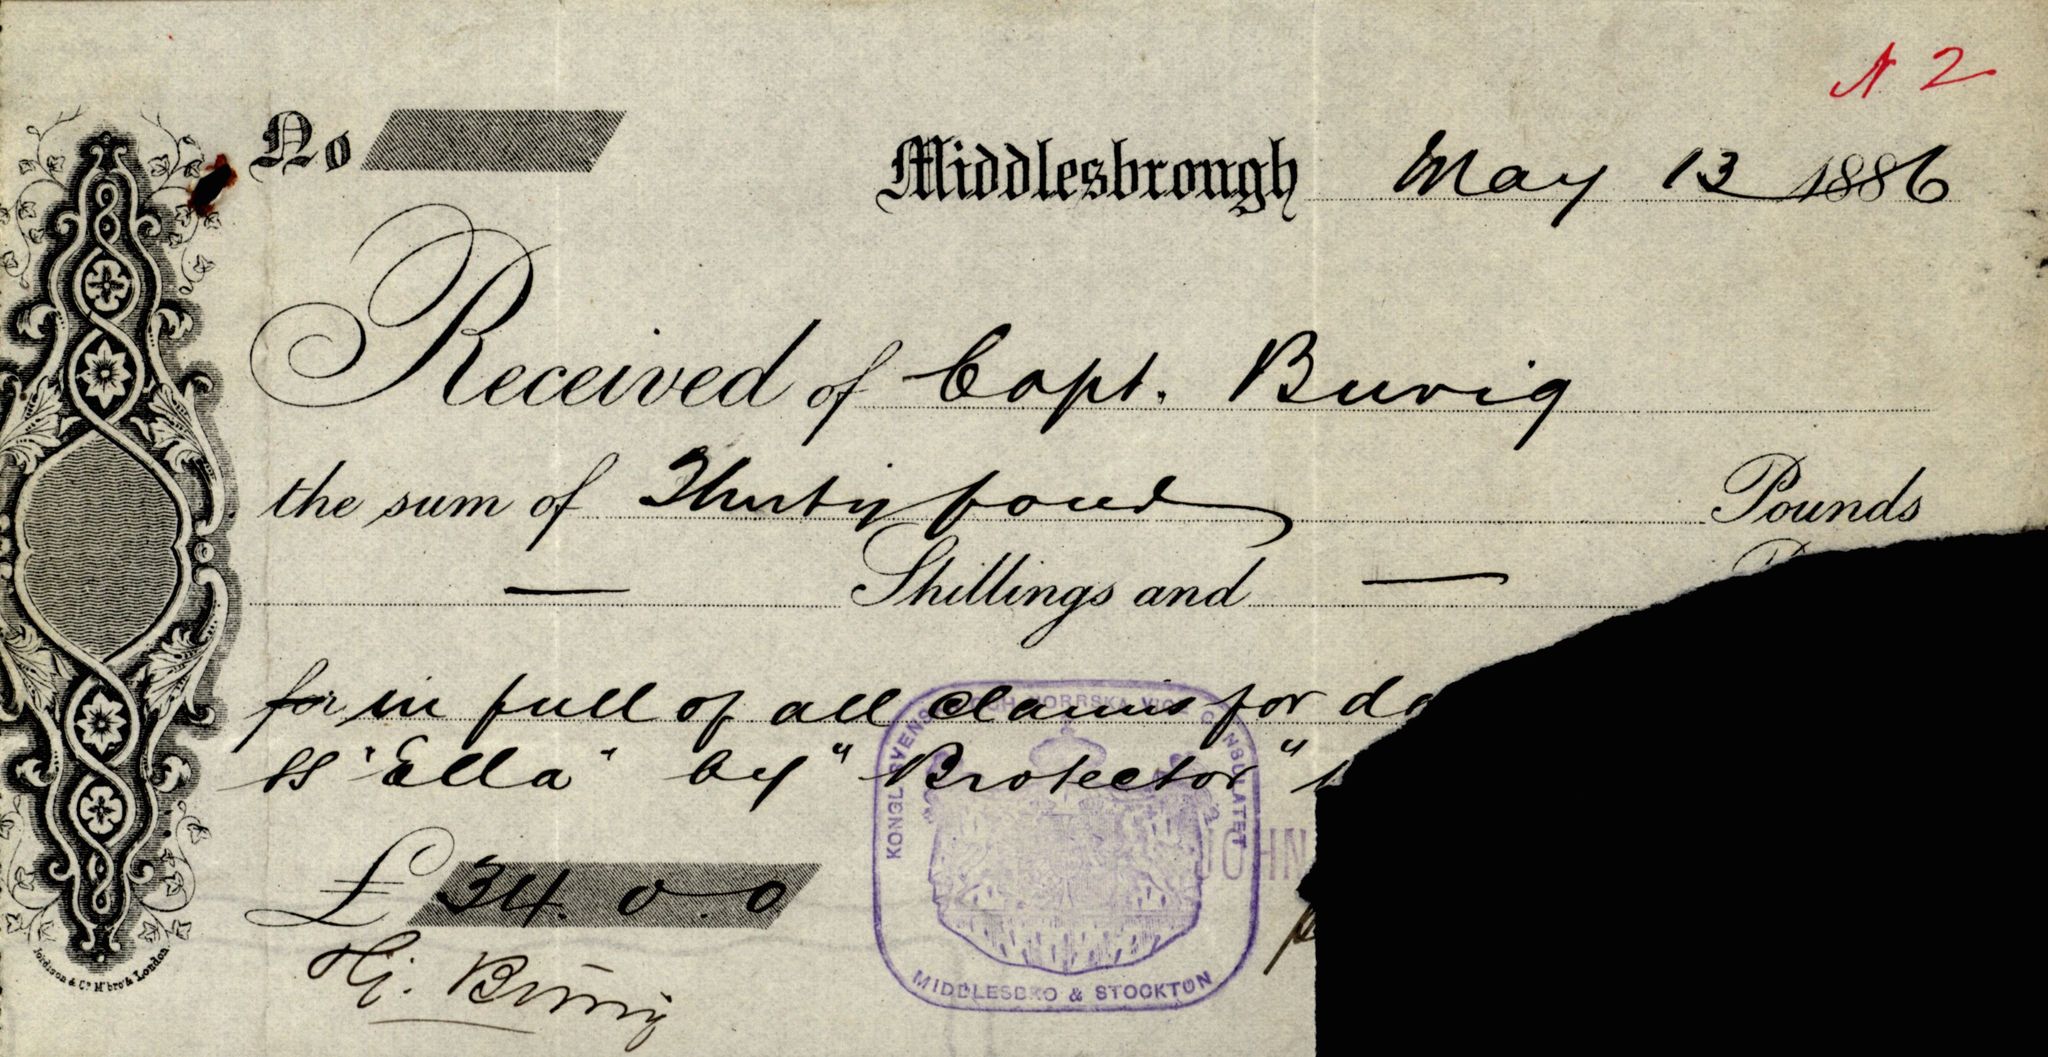 N 2
No
Middlesbrough May 13 1886
Received of Capt. Buvig
the sum of Thirty four Pounds
— Shillings and —
for in full of all claims for da
SS "Ella" by "Protector"
£ 34. 0. 0
JOHN
Hj. Buvig
KONGL. SVENSKA OCH NORRSKA VICE CONSULATET
MIDDLESBRO & STOCKTON
Jordison & Co. M'bro' & London